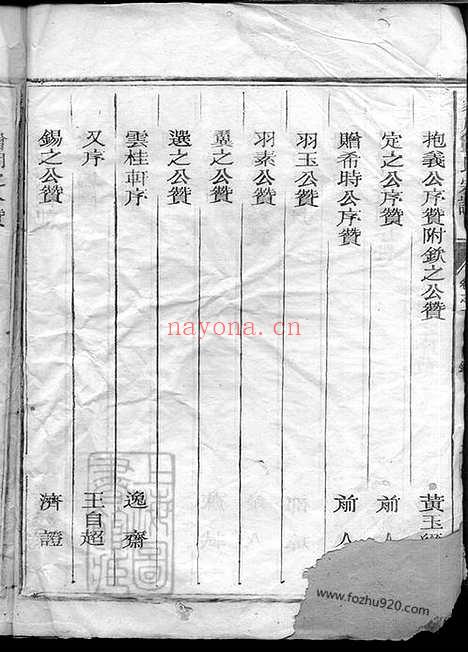 抱義公序贊附欽之公贊 黃玉
定之公序贊 前人
贈希時公序贊 前人
羽玉公贊
羽素公贊
翼之公贊
選之公贊
雲桂軒序 逸齋
又序 王自超
錫之公贊 濟證
nayona.cn
www.fozhu920.com